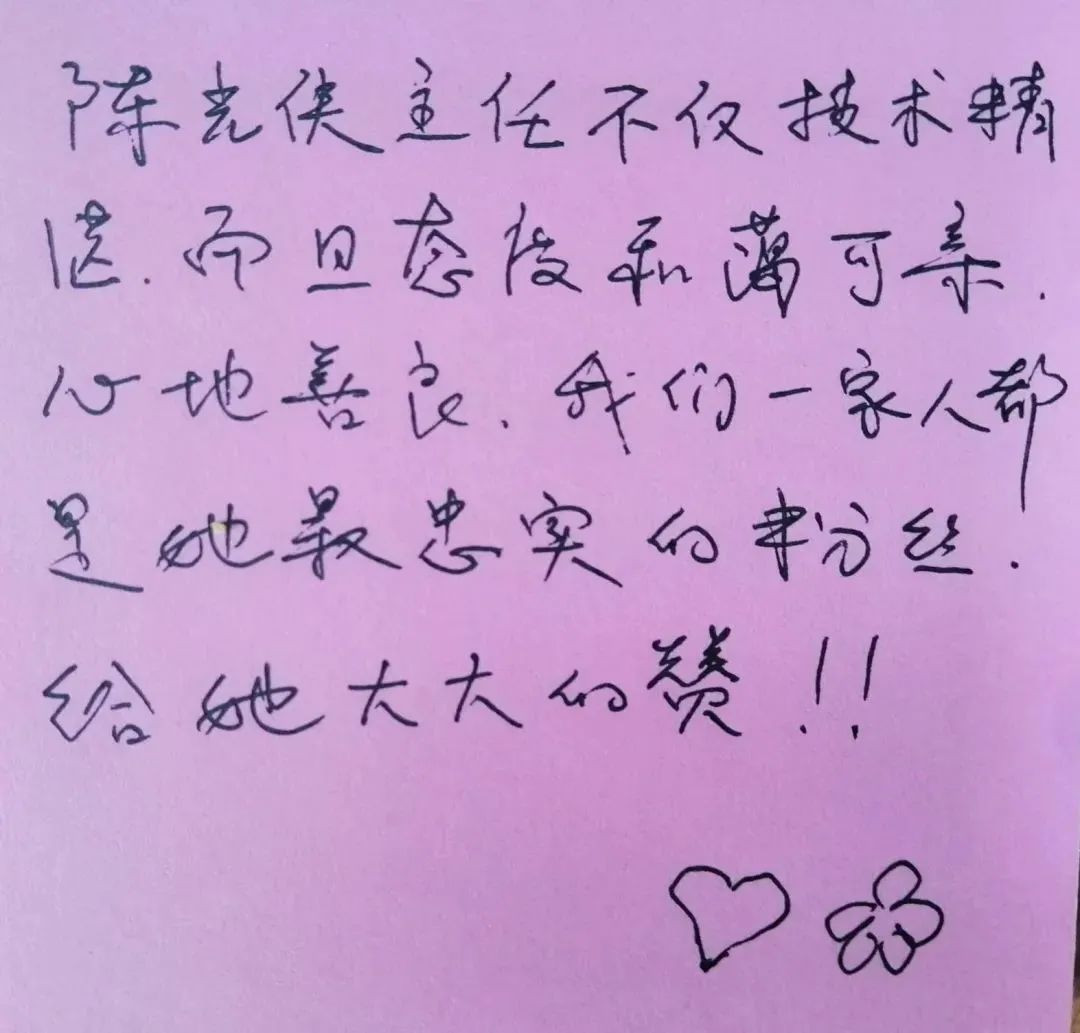 陈光侠主任不仅技术精
湛.而且态度和蔼可亲.
心地善良.我们一家人都
是她最忠实的粉丝.
给她大大的赞!!